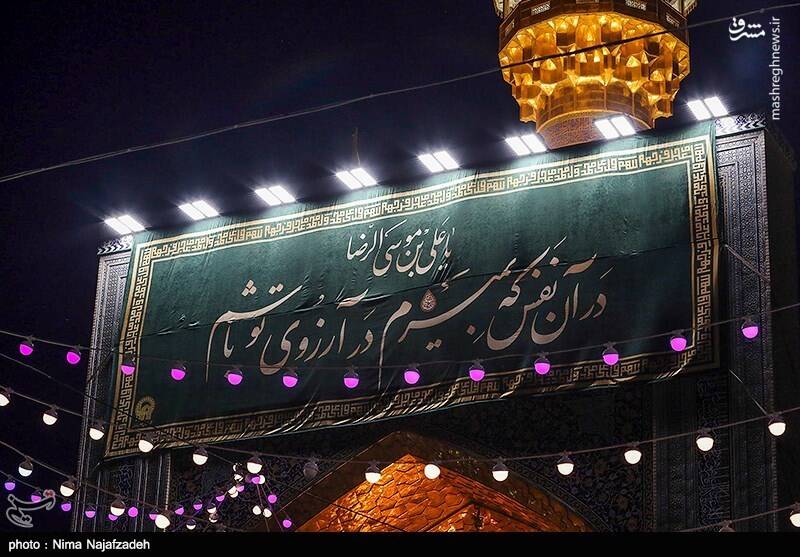 مشرق
mashreghnews.ir
یا علی بن موسی الرضا
در آن نفس که بمیرم در آرزوی تو باشم
تسنیم
photo : Nima Najafzadeh